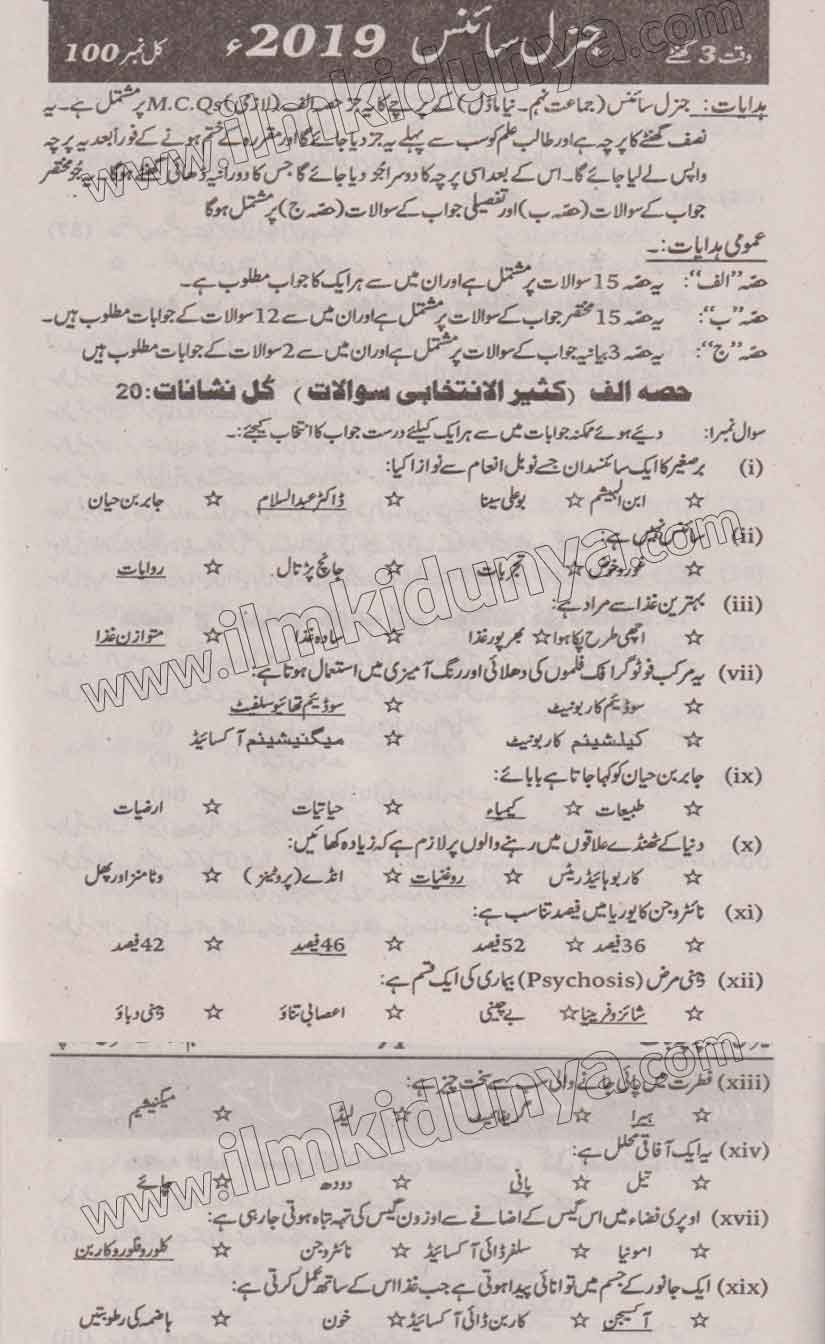 وقت 3 گھنٹے جنرل سائنس 2019ء کل نمبر 100
ہدایات: جنرل سائنس (جماعت نہم۔ نیا ماڈل) کے پرچے کا یہ جز حصہ الف (لازمی) M.C.Qs پر مشتمل ہے۔ یہ
نصف گھنٹے کا پرچہ ہے اور طالب علم کو سب سے پہلے یہ جز دیا جائے گا اور مقررہ کے ختم ہونے کے فوراً بعد یہ پرچہ
واپس لے لیا جائے گا۔ اس کے بعد اسی پرچہ کا دوسرا جز دیا جائے گا جس کا دورانیہ ڈھائی گھنٹے ہوگا۔ یہ جُز مختصر
جواب کے سوالات (حصہ ب) اور تفصیلی جواب کے سوالات (حصہ ج) پر مشتمل ہوگا
عمومی ہدایات:۔
حصہ "الف": یہ حصہ 15 سوالات پر مشتمل ہے اور ان میں سے ہر ایک کا جواب مطلوب ہے۔
حصہ "ب": یہ حصہ 15 مختصر جواب کے سوالات پر مشتمل ہے اور ان میں سے 12 سوالات کے جوابات مطلوب ہیں۔
حصہ "ج": یہ حصہ 3 بیانیہ جواب کے سوالات پر مشتمل ہے اور ان میں سے 2 سوالات کے جوابات مطلوب ہیں
حصہ الف (کثیر الانتخابی سوالات) کُل نشانات: 20
سوال نمبر1: دیئے ہوئے ممکنہ جوابات میں سے ہر ایک کیلئے درست جواب کا انتخاب کیجئے:۔
(i) برصغیر کا ایک سائنسدان جسے نوبل انعام سے نوازا گیا:
☆ ابن الہیشم ☆ بوعلی سینا ☆ ڈاکٹر عبدالسلام ☆ جابر بن حیان
(ii) سائنس نہیں ہے:
☆ غور و خوض ☆ تجربات ☆ جانچ پڑتال ☆ روایات
(iii) بہترین غذا سے مراد ہے:
☆ اچھی طرح پکا ہوا ☆ بھرپور غذا ☆ سادہ غذا ☆ متوازن غذا
(vii) یہ مرکب فوٹو گرافک فلموں کی دھلائی اور رنگ آمیزی میں استعمال ہوتا ہے:
☆ سوڈیم کاربونیٹ ☆ سوڈیم تھائیو سلفیٹ
☆ کیلشینم کاربونیٹ ☆ میگنیشینم آکسائیڈ
(ix) جابر بن حیان کو کہا جاتا ہے بابائے:
☆ طبیعات ☆ کیمیاء ☆ حیاتیات ☆ ارضیات
(x) دنیا کے ٹھنڈے علاقوں میں رہنے والوں پر لازم ہے کہ زیادہ کھائیں:
☆ کاربوہائیڈریٹس ☆ روغنیات ☆ انڈے (پروٹینز) ☆ وٹامنز اور پھل
(xi) نائٹروجن کا یوریا میں فیصد تناسب ہے:
☆ 36 فیصد ☆ 52 فیصد ☆ 46 فیصد ☆ 42 فیصد
(xii) ذہنی مرض (Psychosis) بیماری کی ایک قسم ہے:
☆ شائزوفرینیا ☆ بے چینی ☆ اعصابی تناؤ ☆ ذہنی دباؤ
(xiii) فطرت میں پائی جانے والی سب سے سخت چیز ہے:
☆ ہیرا ☆ گریفائیٹ ☆ لیڈ ☆ میگنیشیم
(xiv) یہ ایک آفاقی محلل ہے:
☆ تیل ☆ پانی ☆ دودھ ☆ چائے
(xvii) اوپری فضاء میں اس گیس کے اضافے سے اوزون گیس کی تہہ تباہ ہوتی جارہی ہے:
☆ امونیا ☆ سلفر ڈائی آکسائیڈ ☆ نائٹروجن ☆ کلورو فلورو کاربن
(xix) ایک جانور کے جسم میں توانائی پیدا ہوتی ہے جب غذا اس کے ساتھ عمل کرتی ہے:
☆ آکسیجن ☆ کاربن ڈائی آکسائیڈ ☆ خون ☆ ہاضمہ کی رطوبتیں
www.ilmkidunya.com
www.ilmkidunya.com
www.ilmkidunya.com